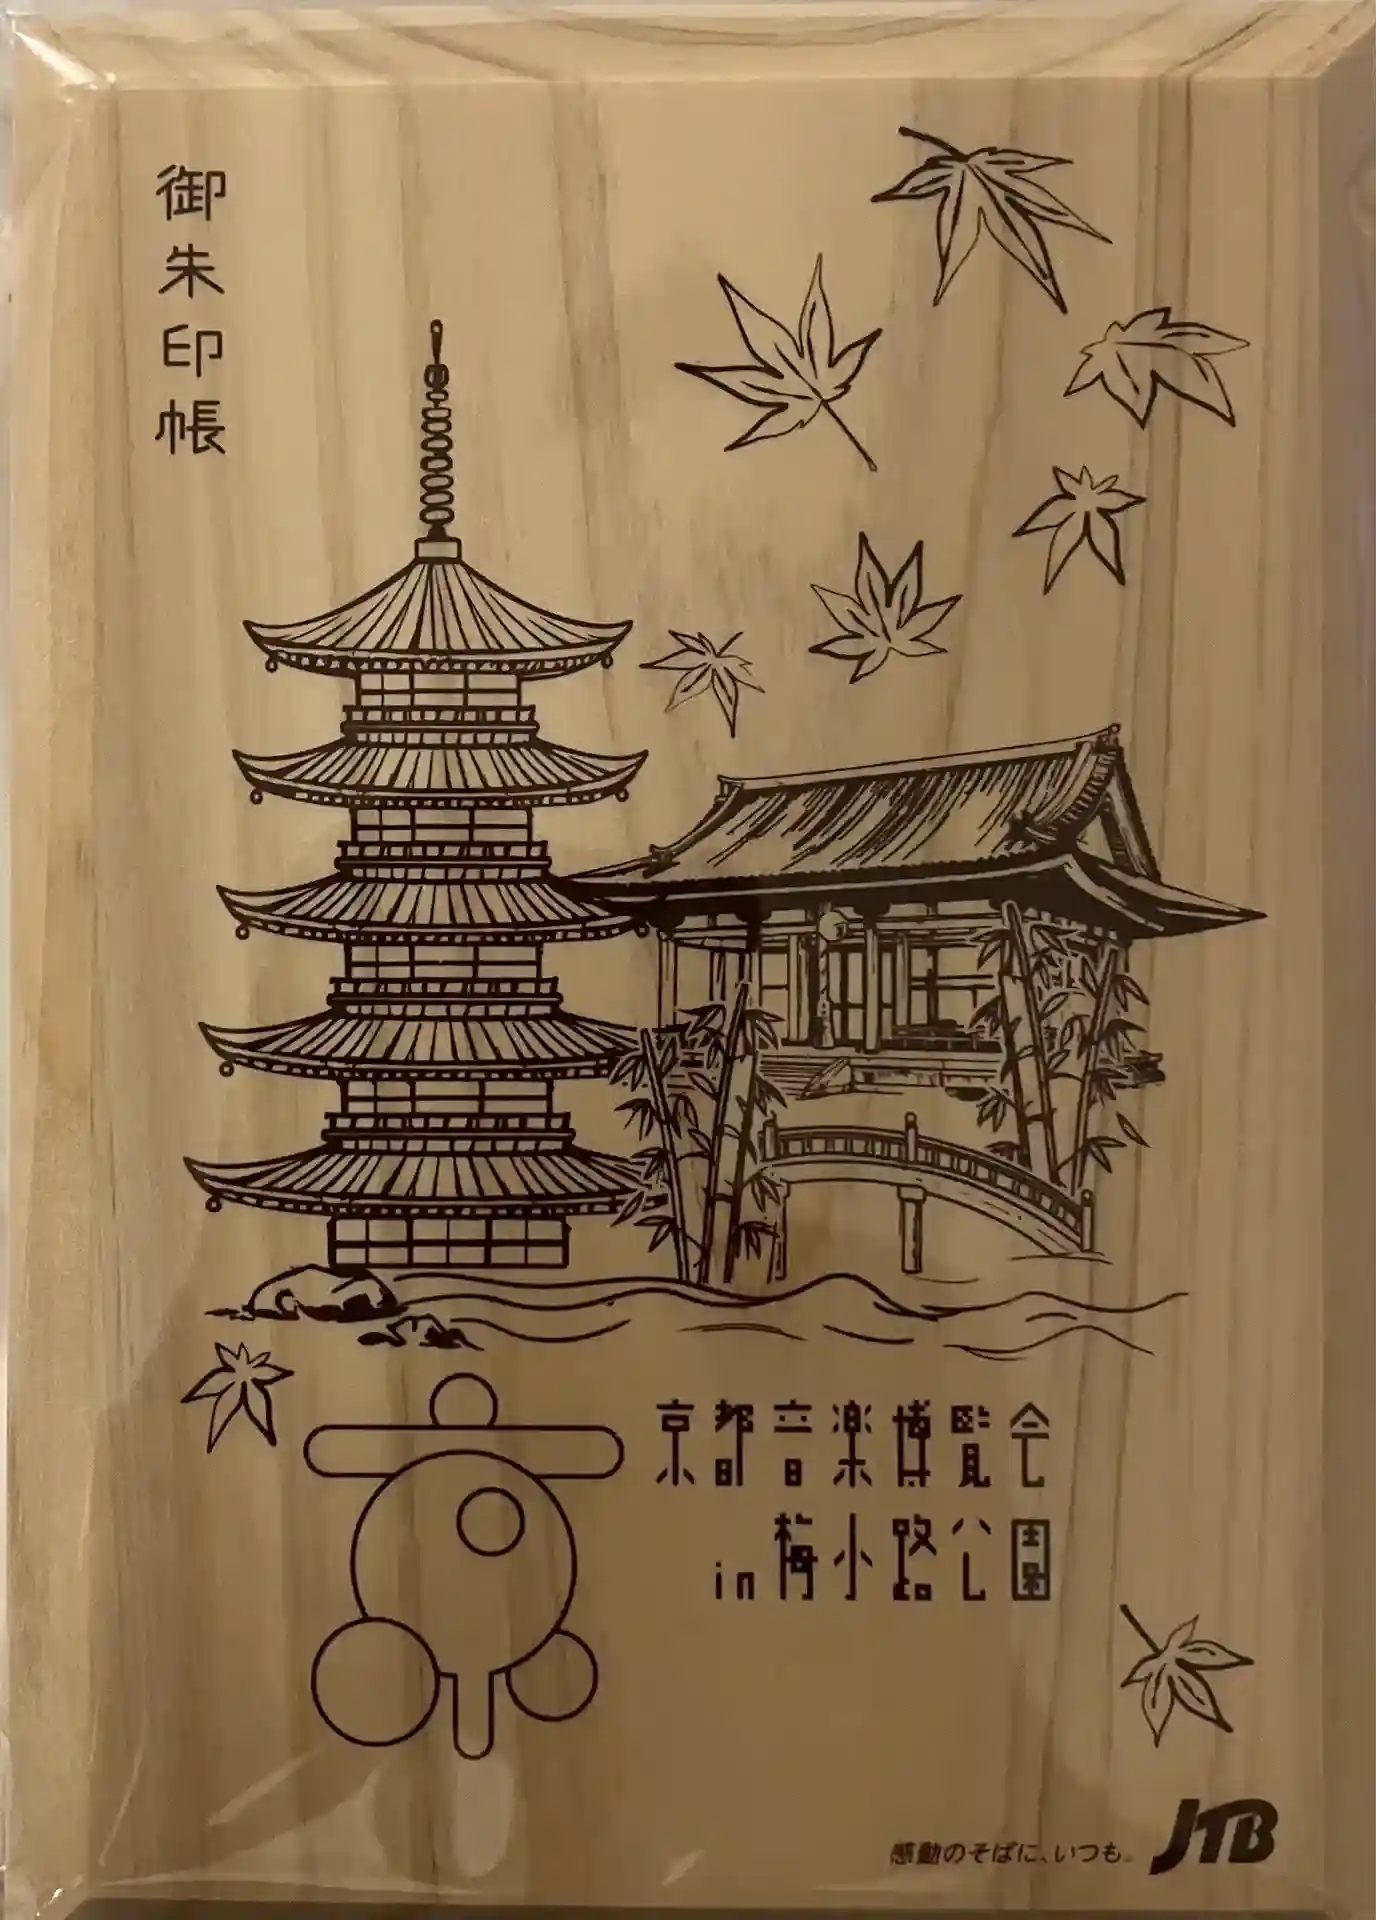 御朱印帳
京都音楽博覧会
in 梅小路公園
感動のそばに、いつも。 JTB